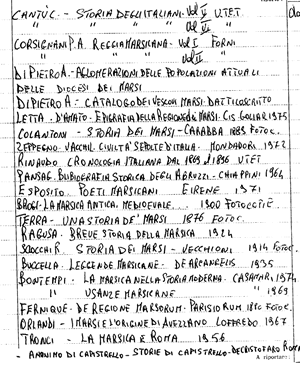 CANTÙ C. - STORIA DEGLI ITALIANI. Vol V. UTET.
" " " " Vol VI. "
CORSIGNANI P.A. REGGIA MARSICANA - Vol I FORNI
" " " " Vol II "
DI PIETRO A. - AGLOMERAZIONI DELLE POPOLAZIONI ATTUALI
DELLE DIOCESI DEI MARSI
DI PIETRO A - CATALOGO DEI VESCOVI MARSI. DATTILOSCRITTO
LETTA. D'AMATO. EPIGRAFIA DELLA REGIONE DEI MARSI. CIS. GOLIAR. 1975
COLANTONI - STORIA DEI MARSI - CARABBA 1889 FOTOC.
ZEPPEGNO. VACCHI. CIVILTÀ SEPOLTE D'ITALIA. MONDADORI 1972
RINAUDO CRONOLOGIA ITALIANA DAL 1869 al 1896 UTET
PANSA G. BIBLIOGRAFIA STORICA DEGLI ABRUZZI - CHIAPPINI 1964
ESPOSITO POETI MARSICANI EIRENE 1971
BROGI - LA MARSICA ANTICA, MEDIOEVALE 1900 FOTOCOPIE
TERRA - UNA STORIA DE' MARSI 1876 FOTOC
RAGUSA - BREVE STORIA DELLA MARSICA 1924
STORIA DEI MARSI - VECCHIONI 1914 FOTOC.
BUCCELLA. LEGGENDE MARSICANE - DE ARCANGELIS 1935
BONTEMPI - LA MARSICA NELLA STORIA MODERNA. CASAMARI, 1974
" USANZE MARSICANE " 1969
FERNIQUE - DE REGIONE MARSORUM - PARISIORUM 1880 FOTOC.
ORLANDI - I MARSI E L'ORIGINE DI AVEZZANO LOFFREDO 1967
TRONCI - LA MARSICA E ROMA 1956
- ANONIMO DI CAPISTRELLO - STORIE DI CAPISTRELLO - DECRISTOFARO ROMA
A riportare